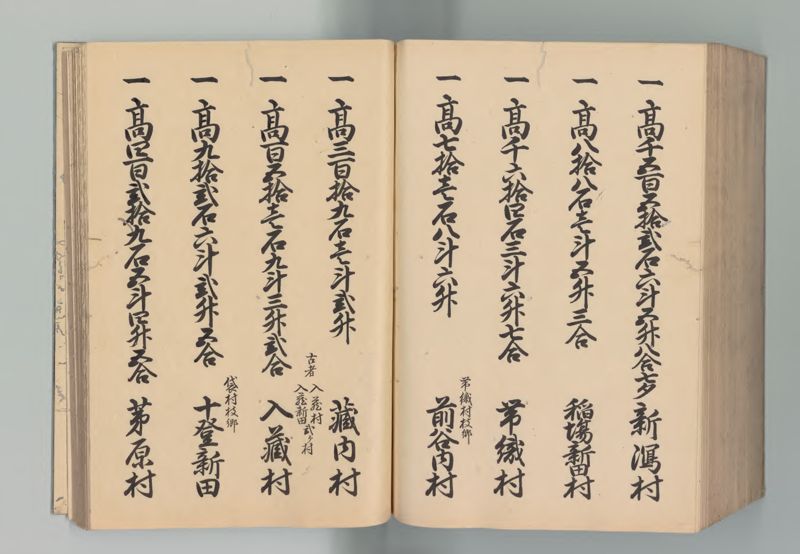 一 高千五百五拾弐石六斗五升八合七夕 新潟村
一 高八拾八石壱斗五升三合 稲場新田村
一 高千六拾四石三斗六升七合 帯織村
帯織村枝郷
一 高七拾壱石八斗六升 前谷内村
一 高三百拾九石壱斗弐升 蔵内村
古者 入蔵村
入蔵新田 弐ヶ村
一 高百五拾壱石九斗三升弐合 入蔵村
袋村枝郷
一 高九拾弐石六斗弐升五合 十登新田
一 高四百弐拾九石五斗四升五合 茅原村